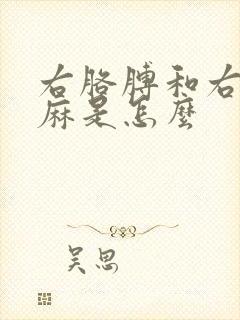 右胳膊和右
麻是怎麼
吴思